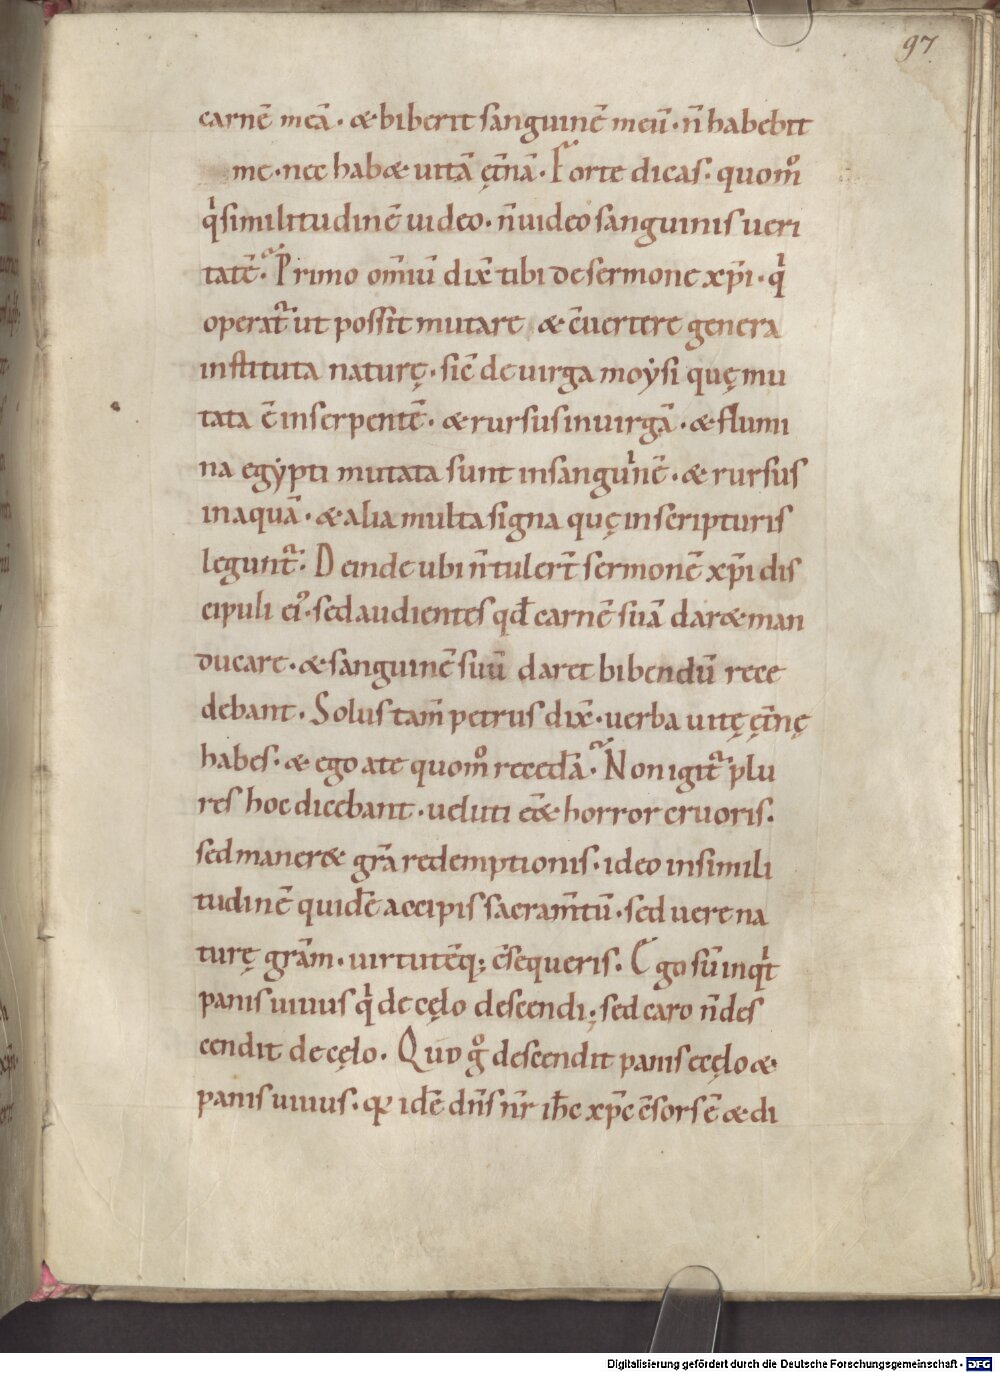 97
carnē meā · & biberit sanguinē meū · n̄ habebit
me · nec hab& uitā ęt̄nā · Forte dicas · quom̊
qͥ similitudinē uideo · n̄ uideo sanguinis ueri
tatē · Primo om̄iū dix̄ tibi de sermone xp̄i · qͥ
operat᷑ ut possit mutare & c̄uertere genera
instituta naturę · sic̄ de uirga moẏsi quę mu
tata ē in serpentē · & rursus in uirgā · & flumi
na egẏpti mutata sunt in sanguͥnē · & rursus
in aquā · & alia multa signa quę in scripturis
legunt᷑ · Deinde ubi n̄ tulert̄ sermonē xp̄i dis
cipuli ei᾽ · sed audientes qd̄ carnē suā dar& man
ducare · & sanguinē suū daret bibendū rece
debant · Solus tam̄ petrus dix̄ · uerba uitę ęt̄nę
habes · & ego a te quom̊ recedā · Non igit᷑ plu
res hoc dicebant · ueluti c̄&̄ horror cruoris ·
sed maner& gr̄a redemptionis · ideo in simili
tudinē quidē accipis sacram̄tū · sed uere na
turę gr̄am · uirtutēq; c̄sequeris · Ego sū inqͥt
panis uiuus qͥ de cęlo descendi · sed caro n̄ des
cendit de cęlo · Quo g̊ descendit panis e cęlo &
panis uiuus · qꝛ idē dn̄s nr̄ ih̄c xp̄c c̄sors ē & di
Digitalisierung gefördert durch die Deutsche Forschungsgemeinschaft · DFG